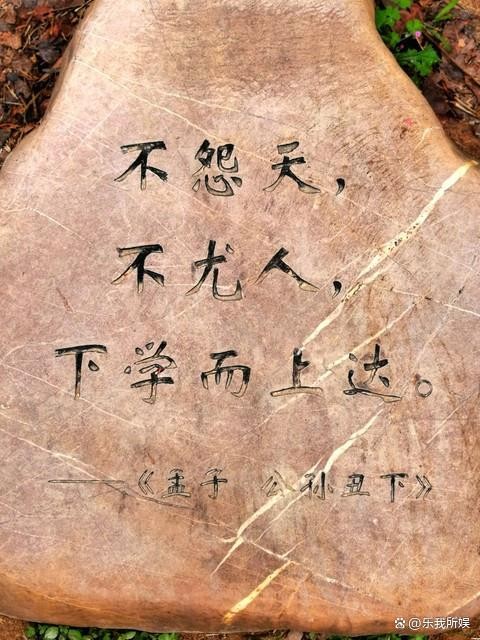 不怨天，
不尤人，
下学而上达。
——《孟子 公孙丑下》
@乐我所娱